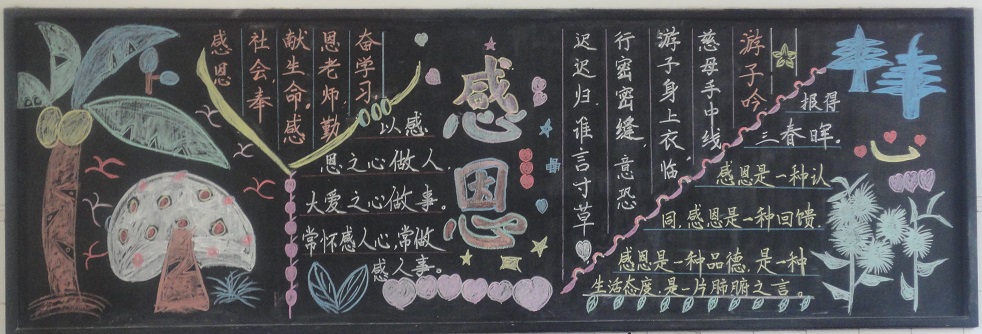 感恩
社会,奉
献生命。感
恩老师,勤
奋学习.
以感
恩之心做人.
大爱之心做事。
常怀感人心,常做
感人事。
感
恩
游子吟
慈母手中线,
游子身上衣,临
行密密缝,意恐
迟迟归.谁言寸草
报得
三春晖.
感恩是一种认
同,感恩是一种回馈.
感恩是一种品德,是一种
生活态度,是一片肺腑之言。